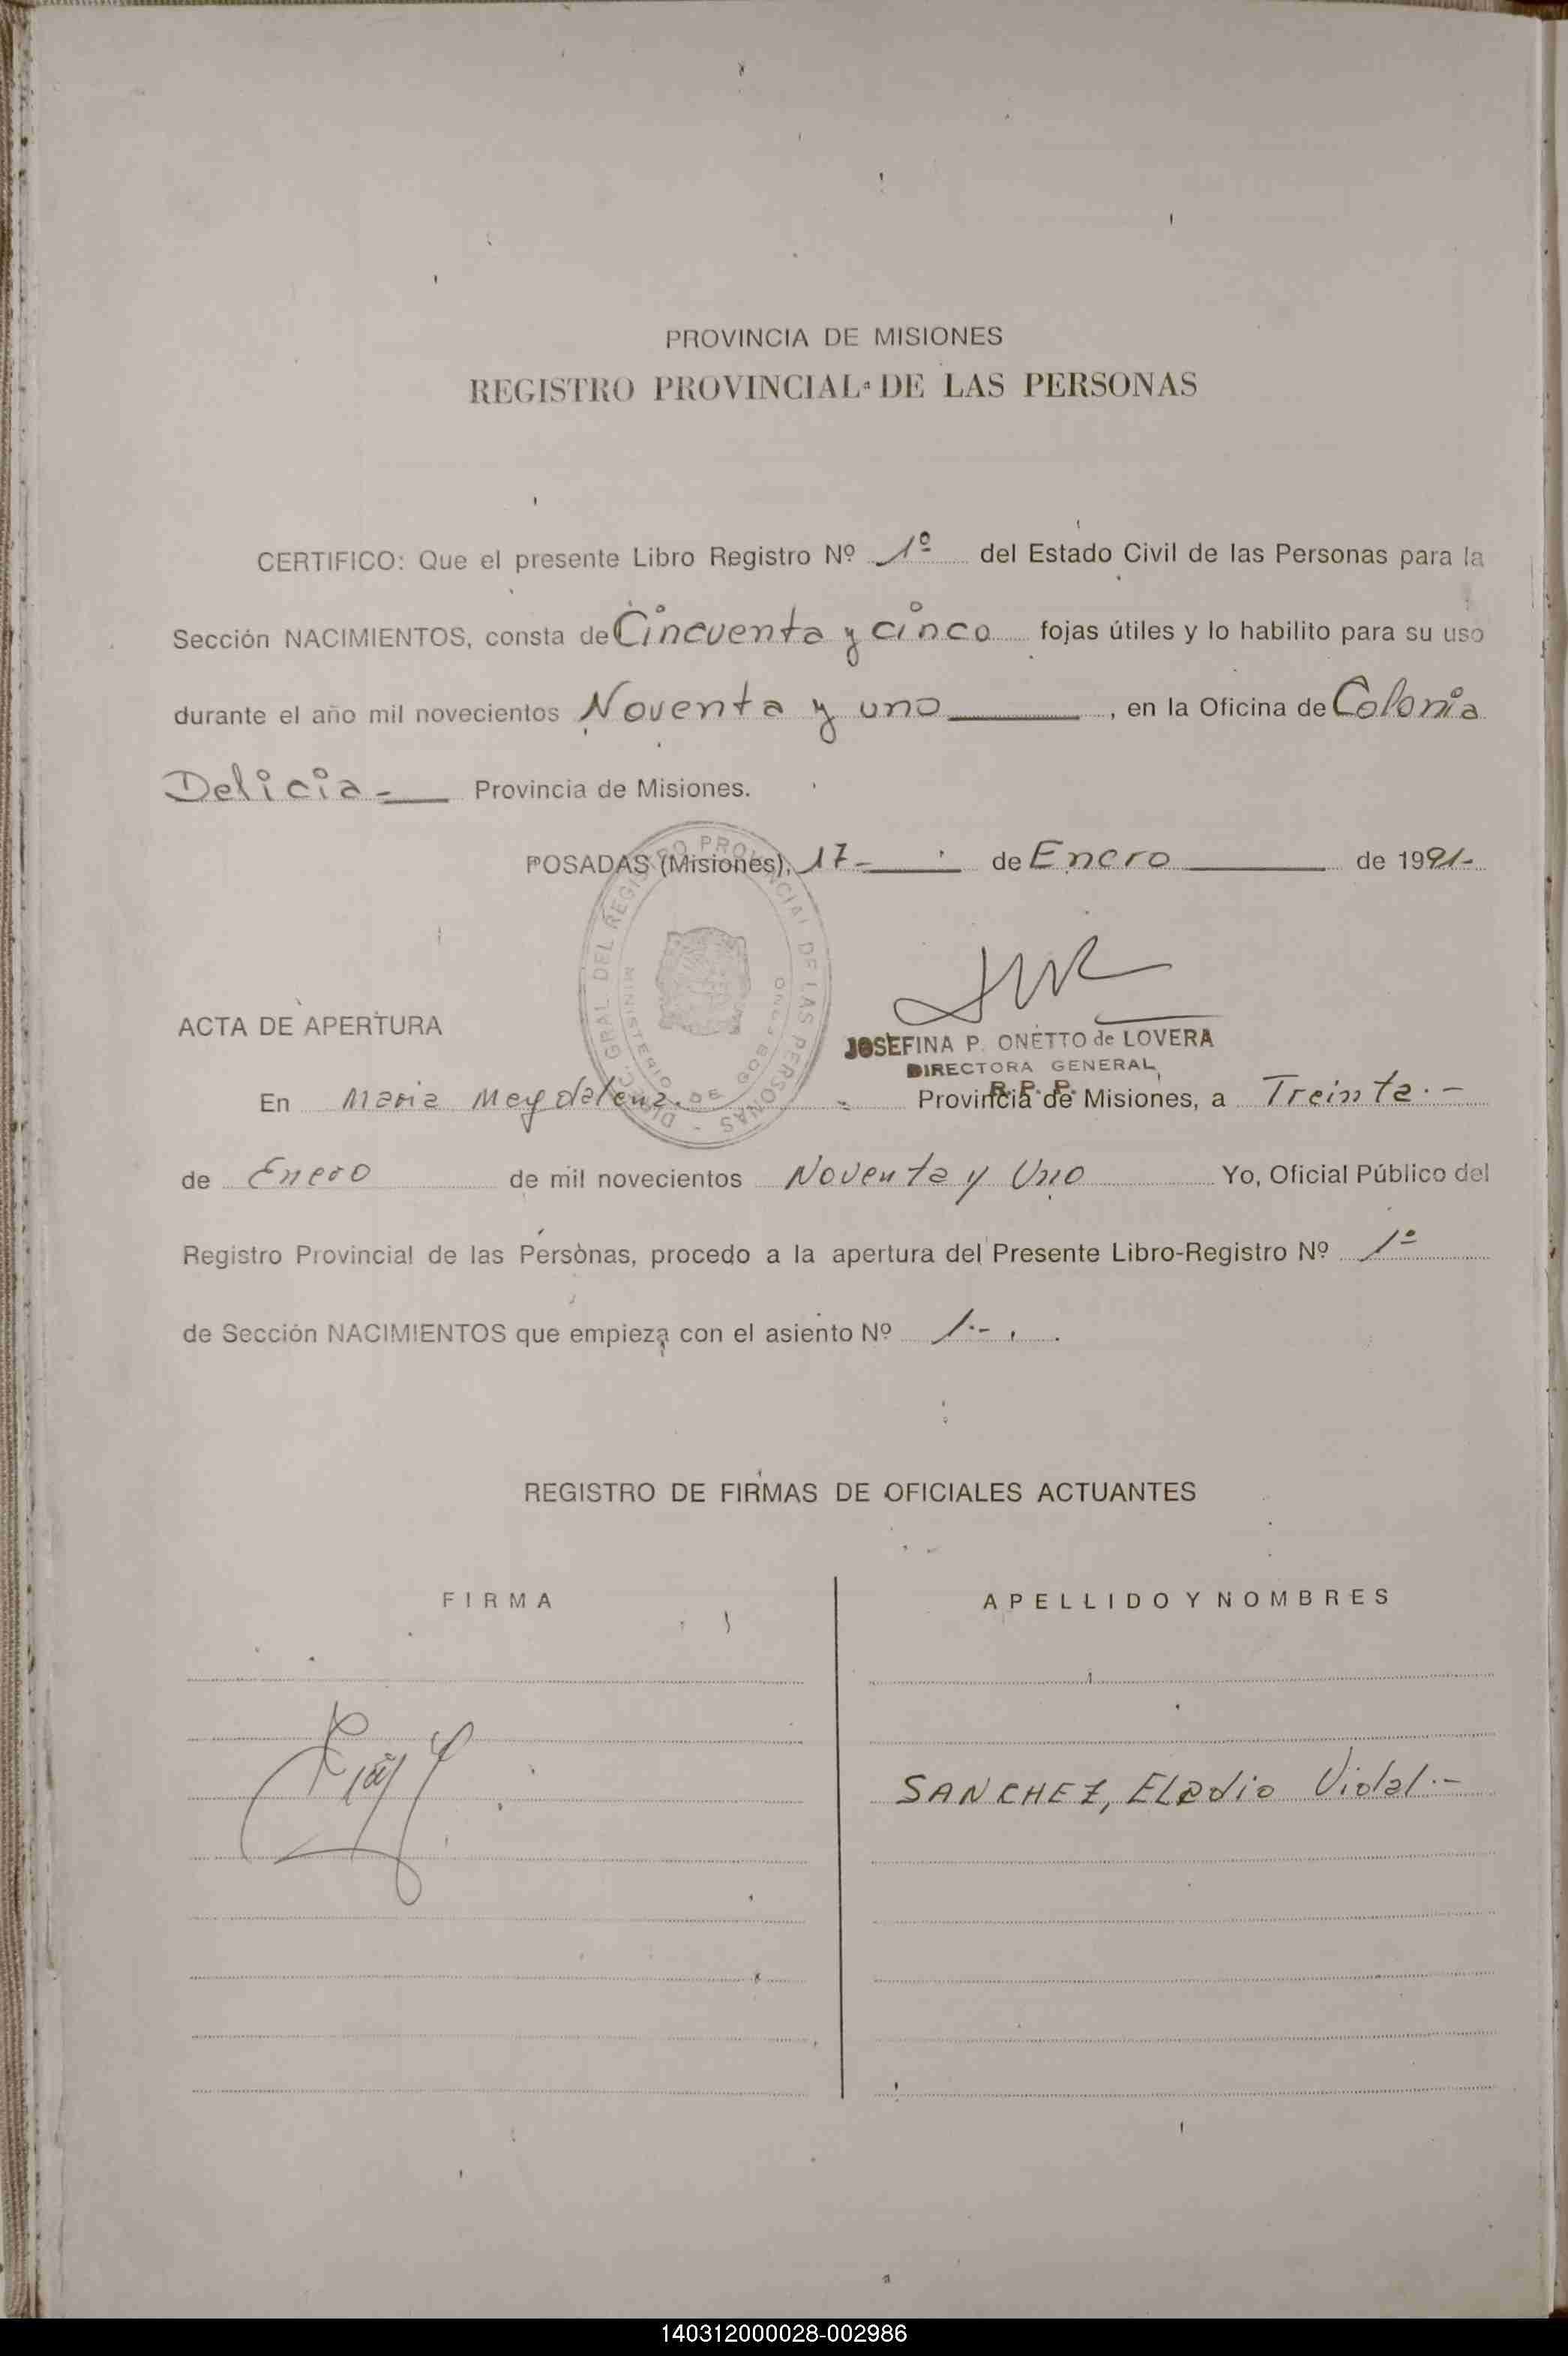 PROVINCIA DE MISIONES
REGISTRO PROVINCIAL DE LAS PERSONAS
CERTIFICO: Que el presente Libro Registro Nº 1º del Estado Civil de las Personas para la
Sección NACIMIENTOS, consta de Cincuenta y cinco fojas útiles y lo habilito para su uso
durante el año mil novecientos Noventa y uno, en la Oficina de Colonia
Delicia - Provincia de Misiones.
POSADAS (Misiones), 17- de Enero de 1991-
JOSEFINA P. ONETTO de LOVERA
DIRECTORA GENERAL
R. P. P.
ACTA DE APERTURA
En Maria Magdalena. Provincia de Misiones, a Treinta.-
de Enero de mil novecientos Noventa y Uno Yo, Oficial Público del
Registro Provincial de las Personas, procedo a la apertura del Presente Libro-Registro Nº 1º
de Sección NACIMIENTOS que empieza con el asiento Nº 1.-
REGISTRO DE FIRMAS DE OFICIALES ACTUANTES
FIRMA APELLIDO Y NOMBRES
SANCHEZ, ELadio Vidal.-
140312000028-002986